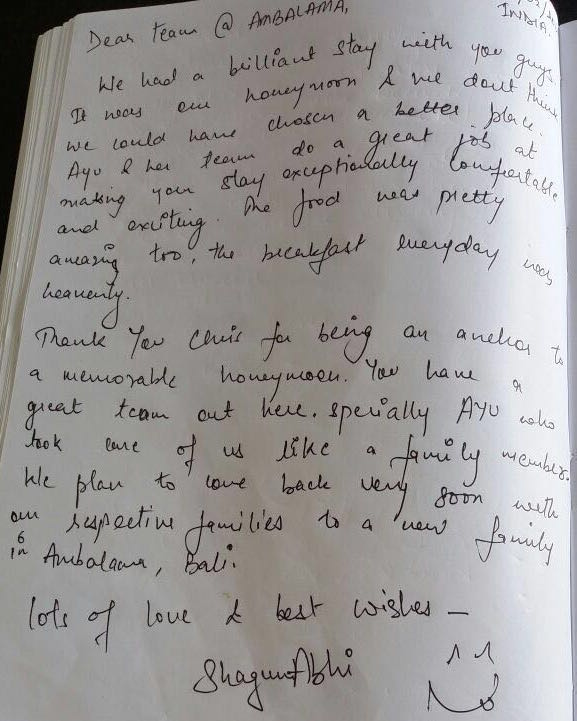 INDIA.
Dear team @ AMBALAMA,
We had a brilliant stay with you guys.
It was our honeymoon & we dont think
we could have chosen a better place.
Ayu & her team do a great job at
making your stay exceptionally comfortable
and exciting. The food was pretty
amazing too, the breakfast everyday was
heavenly.
Thank You Chris for being an anchor to
a memorable honeymoon. You have a
great team out here. specially AYU who
took care of us like a family member.
We plan to come back very soon with
our respective families to a new family
in Ambalama, Bali.
lots of love & best wishes –
Shagun+Abhi